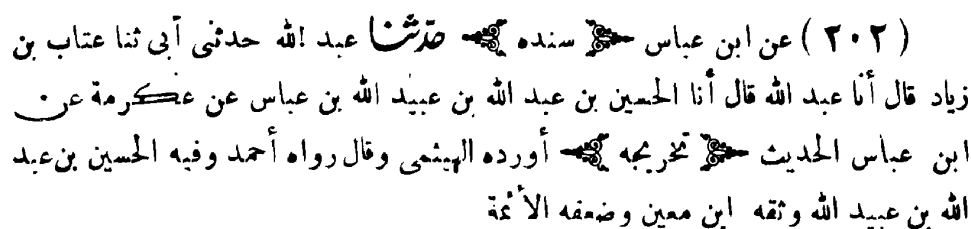 ( ٢٠٢ ) عن ابن عباس ﴿ سنده ﴾ حدثنا عبد الله حدثنى أبى ثنا عتاب بن
زياد قال أنا عبد الله قال أنا الحسين بن عبد الله بن عبيد الله بن عباس عن عكرمة عن
ابن عباس الحديث ﴿ تخريجه ﴾ أورده الهيثمى وقال رواه أحمد وفيه الحسين بن عبد
الله بن عبيد الله وثقه ابن معين وضعفه الأئمة